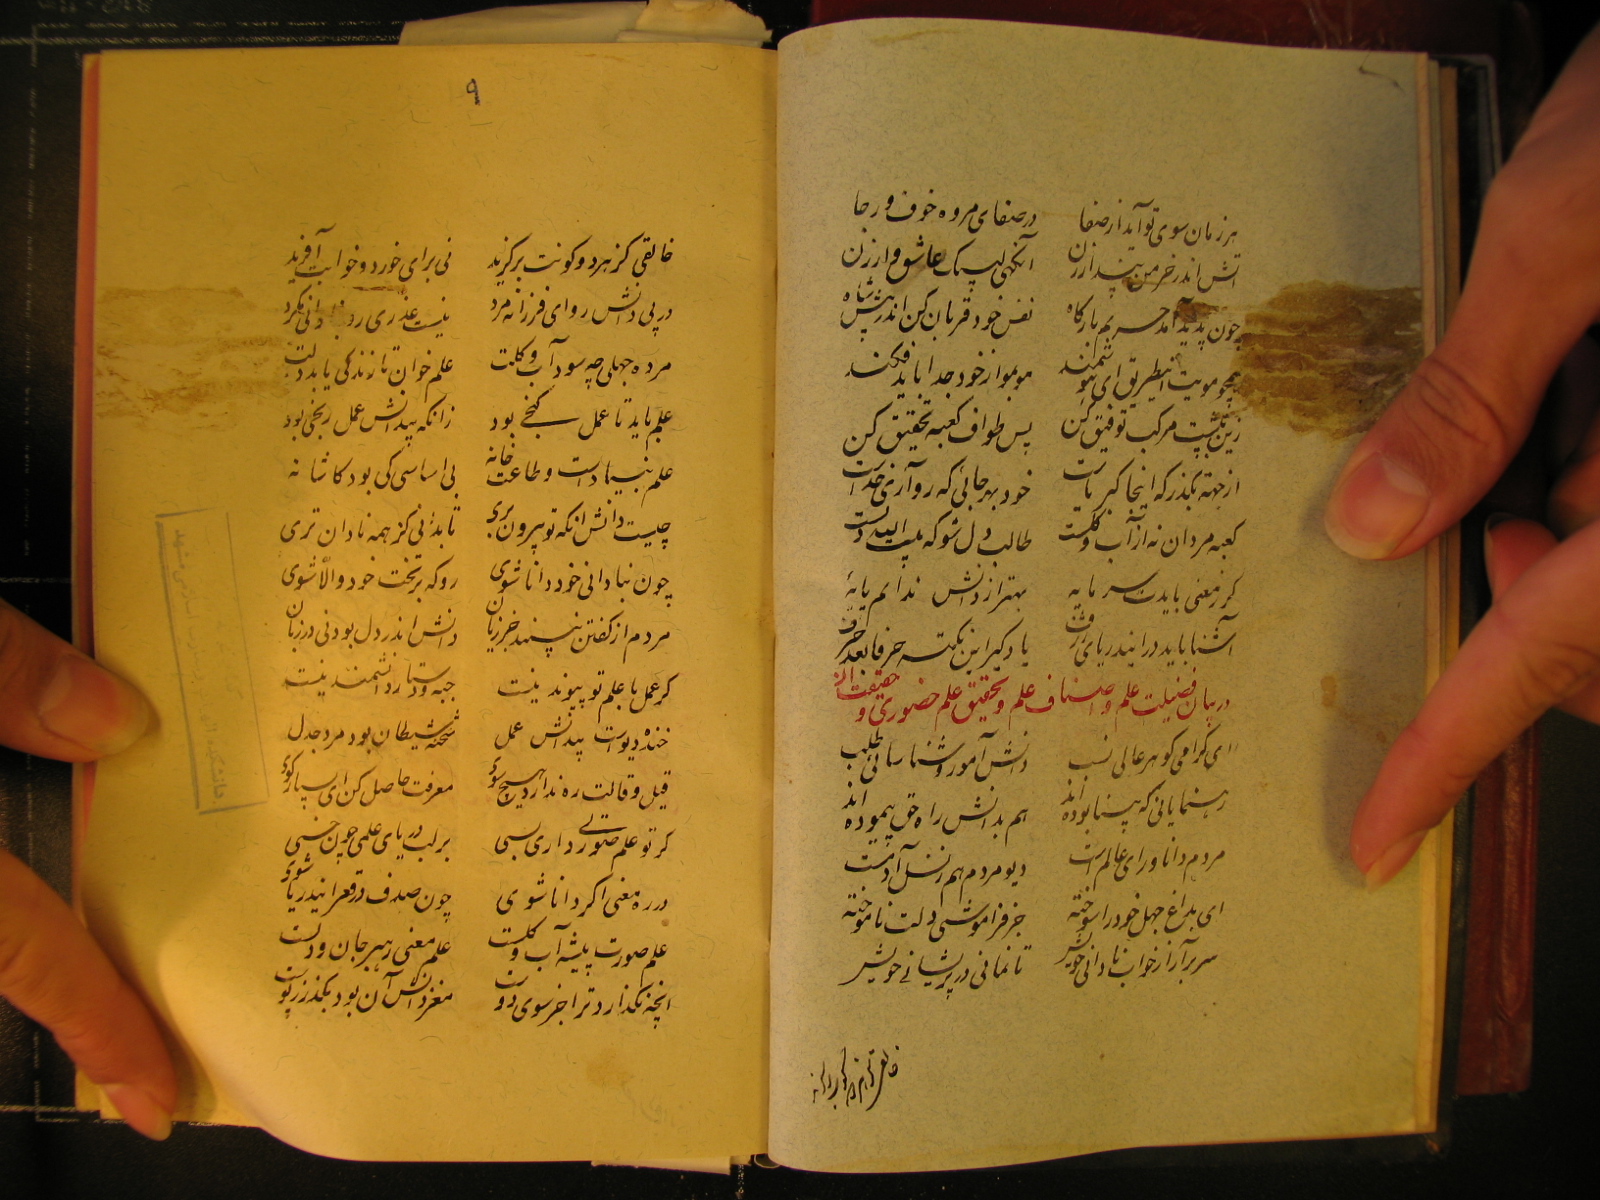 هر زمان سوی تو آید از صفا در صفای مروه خوف و رجا
آتش اندر خرمن پندار زن آنگهی لبیک عاشق وار زن
چون پدید آمد حریم بارگاه نفس خود قربان کن اندر پیش شاه
همچو مویت از طریق ای هوشمند موبمو از خود جدا باید فکند
زین نپشت مرکب توفیق کن پس طواف کعبه تحقیق کن
از جهته بگذر که اینجا کبریاست خود بهر جائی که رو آری خداست
کعبه مردان نه از آب و گلست طالب دل شو که بیت الله دلست
گر ز معنی بایدت سرمایه بهتر از دانش ندانم پایهٔ
آشنا باید در این دریای ژرف یاد گیر این نکته حرفا بعد حرف
در بیان فضیلت علم و اصناف علم و تحقیق علم حضوری و حقیقت آن
ای گرامی گوهر عالی نسب دانش آموز و شناسائی طلب
رهنمایانی که بینا بوده اند هم بدانش راه حق پیموده اند
مردم دانا ورای عالم است دیو مردم هم ز نسل آدمست
ای بداغ جهل خود را سوخته جز فراموشی دلت ناموخته
سر برآر از خواب نادانی خویش تا نمانی در پریشانی خویش
۹
خالقی کز هر دو کونت برگزید نی برای خورد و خوابت آفرید
در پی دانش رو ای فرزانه مرد نیست عذری روز نادانی مگرد
مرده جهلی چه سود آب و گلت علم خوان تا زندگی یابد دلت
علم باید تا عمل گنجی بود زانکه بیدانش عمل رنجی بود
علم بنیاد است و طاعت خانه بی اساسی کی بود کاشانه
چیست دانش آنکه تو بیرون بری تا بدانی کز همه نادان تری
چون بنادانی خود دانا شوی رو که بر تخت خود والا شوی
مردم از گفتن نبیند جز زیان دانش اندر دل بود نی در زبان
گر عمل با علم تو پیوند نیست جبه و دستار دانشمند نیست
خنده دیو است بیدانش عمل شحنه شیطان بود مرد جدل
قیل و قالت ره ندارد هیچ سوی معرفت حاصل کن ای بسیار گوی
گر تو علم صورتی داری بسی بر لب دریای علمی چون خسی
در ره معنی اگر دانا شوی چون صدف در قعر این دریا شوی
علم صورت پیشه آب و گلست علم معنی رهبر جان و دلست
آنچه نگذارد ترا جز سوی دوست مغز دانش آن بود بگذر ز پوست